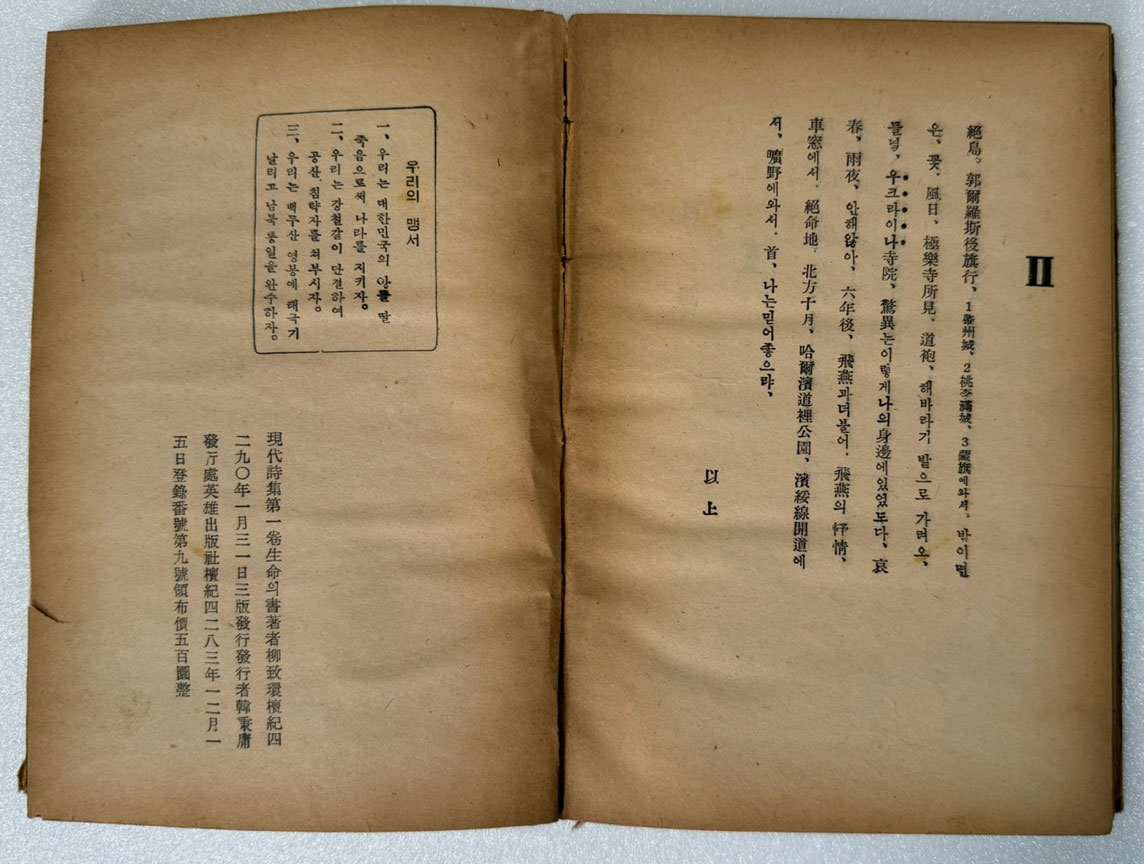 II
絕島。郭爾羅斯後旗行、1肇州城、2桃李滿城、3蒙旗에와서、밤이면
은、꽃、風日、極樂寺所見、道袍、해바라기 밭으로 가려오、
들녘、우크라이나寺院、驚異는이렇게나의身邊에있었도다、哀
春、雨夜、안해앓아、六年後、飛燕과더불어、飛燕의 抒情、
車窓에서、絕命地 北方十月、哈爾濱道裡公園、濱綏線開道에
서、曠野에와서、首、나는믿어좋으랴、
以上
우리의 맹서
一、우리는 대한민국의 아들 딸
죽음으로써 나라를 지키자。
二、우리는 강철같이 단결하여
공산 침략자를 처부시자。
三、우리는 백두산 영봉에 태극기
날리고 남북 통일을 완수하자。
現代詩集第一卷生命의書著者柳致環檀紀四
二九〇年一月三一日三版發行發行者韓秉庸
發行處英雄出版社檀紀四二八三年一二月一
五日登錄番號第九號頒布價五百圜整